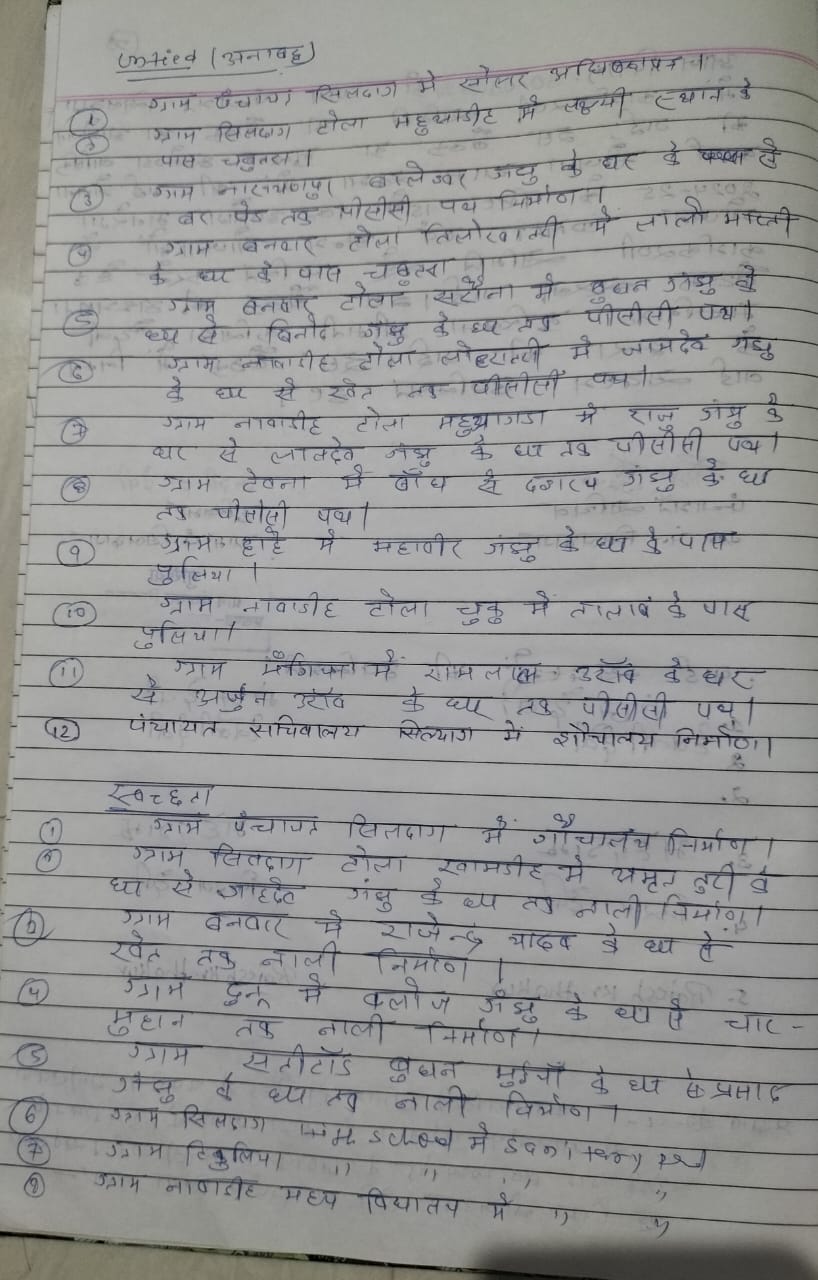 Untied (अनाबद्ध)
① ग्राम पंचायत सिलदाग मे सोलर
② ग्राम सिलदाग टोला महुआडीह मे लक्ष्मी स्थान के
पास चबुतरा।
③ ग्राम नारायणपुर बालेश्वर गंझु के घर के पास से
बरा पेड तक पीसीसी पथ निर्माण।
④ ग्राम बनवार टोला मे लालो
के घर के पास चबुतरा।
⑤ ग्राम बनवार टोला सटौना मे बुधन गंझु के
घर से विनोद गंझु के घर तक पीसीसी पथ।
⑥ ग्राम नावाडीह टोला मे जामदेव गंझु
के घर से खेत तक पीसीसी पथ।
⑦ ग्राम नावाडीह टोला महुआगडा मे राजु गंझु के
घर से लालदेव गंझु के घर तक पीसीसी पथ।
⑧ ग्राम टेवना मे बाँध से दशरथ गंझु के घर
तक पीसीसी पथ।
⑨ ग्राम हाहे मे महावीर गंझु के घर के पास
पुलिया।
⑩ ग्राम नावाडीह टोला चुकु मे तालाब के पास
पुलिया।
⑪ ग्राम में रामलाल उराँव के घर
से अर्जुन उराँव के घर तक पीसीसी पथ।
⑫ पंचायत सचिवालय सिलदाग मे शौचालय निर्माण।
स्वच्छता
① ग्राम पंचायत सिलदाग में शौचालय निर्माण।
② ग्राम सिलदाग टोला खामडीह मे अमृत तुरी के
घर से जाहदेव गंझु के घर तक नाली निर्माण।
③ ग्राम बनवार मे राजेन्द्र यादव के घर से
खेत तक नाली निर्माण।
④ ग्राम मे गंझु के घर से चार-
मुहान तक नाली निर्माण।
⑤ ग्राम सलीटॉड बुधन भुईयाँ के घर से प्रसाद
गंझु के घर तक नाली निर्माण।
⑥ ग्राम सिलदाग M. School मे
⑦ ग्राम टिकुलिया " " " "
⑧ ग्राम नावाडीह मध्य विद्यालय मे " "